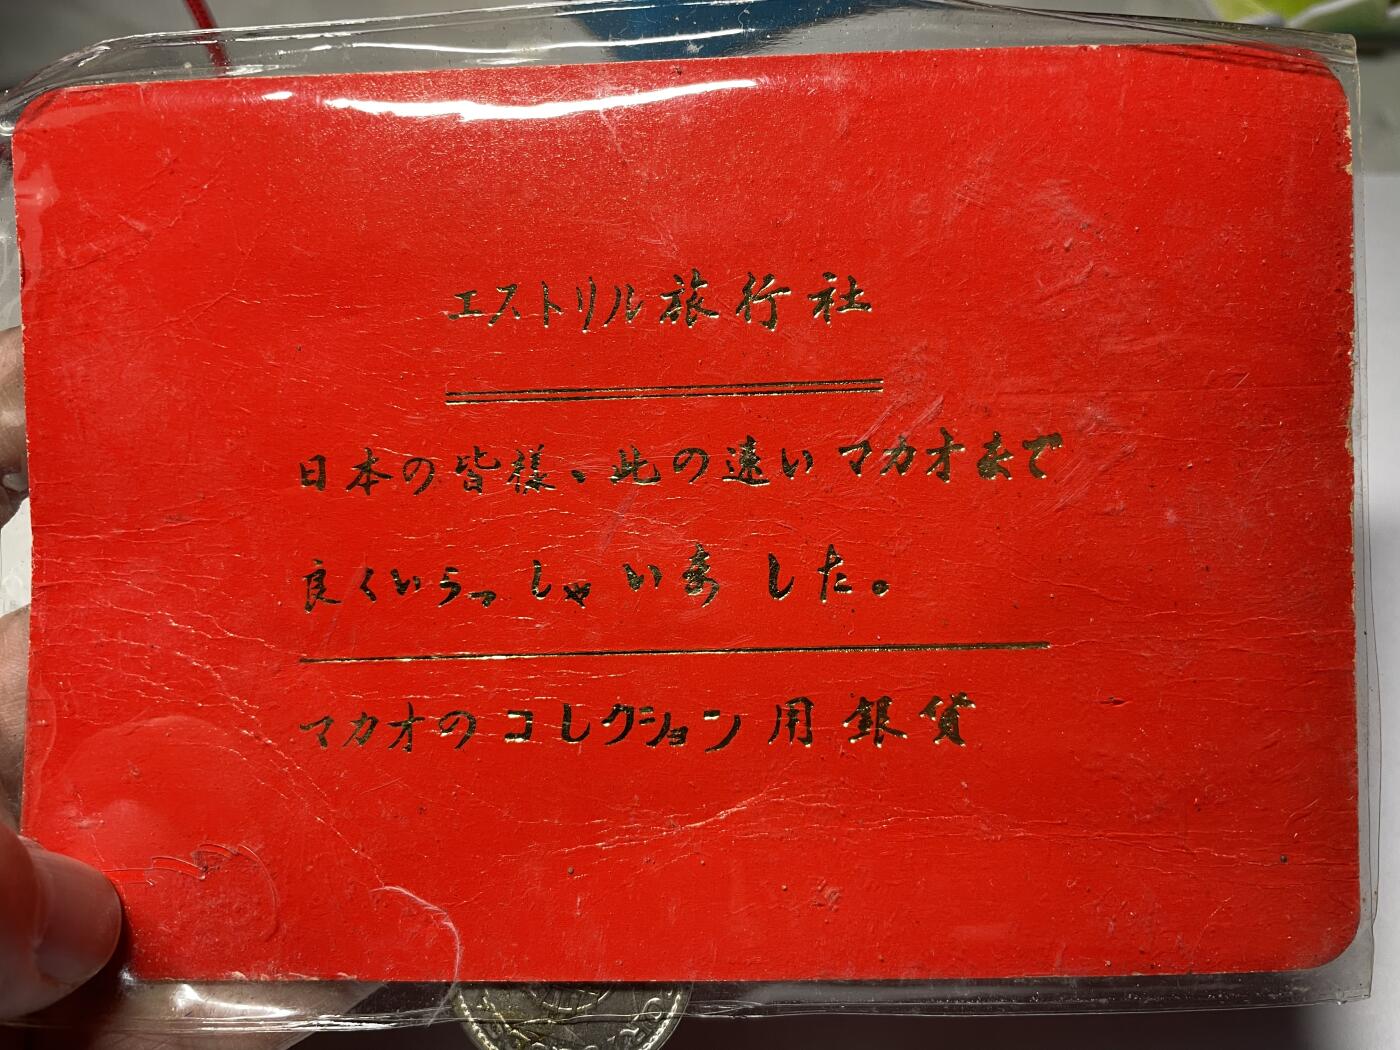 エストリル旅行社
日本の皆様、此の遠いマカオまで
良くいらっしゃいました。
マカオのコレクション用銀貨